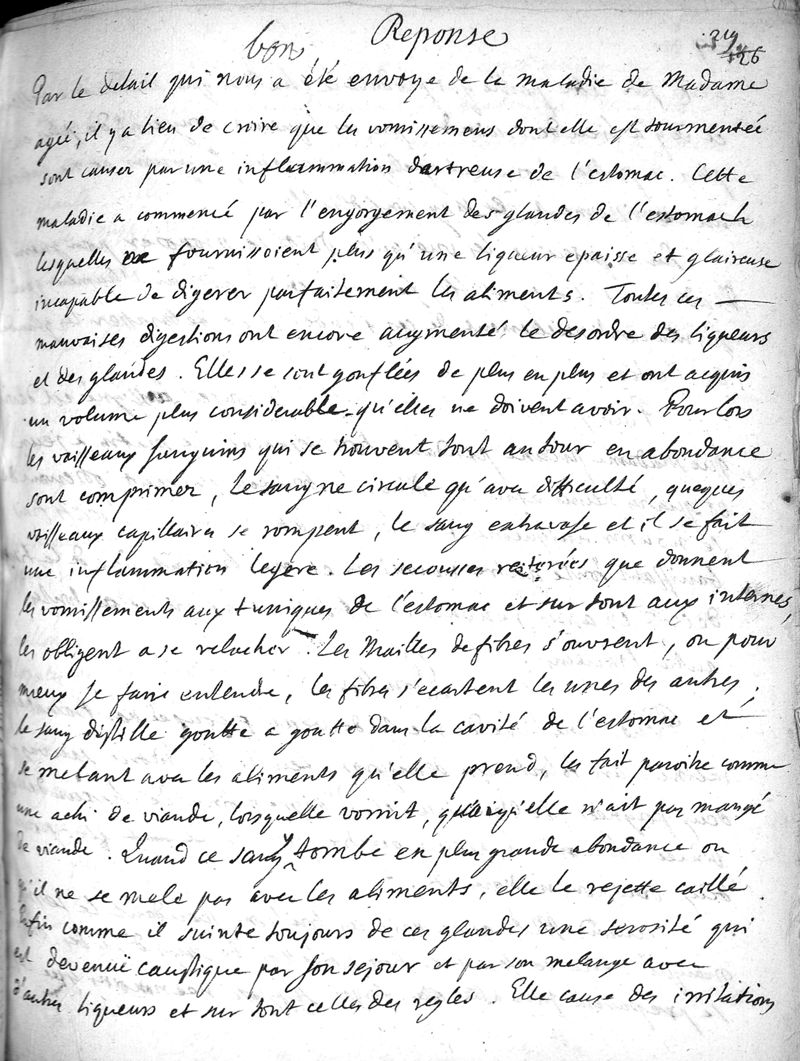 bon Reponse
Par le detail qui nous a été envoye de la maladie de Madame
agée, il y a lieu de croire que les vomissemens dont elle est tourmentée
sont causez par une inflammation dartreuse de l'estomac. Cette
maladie a commencé par l'engorgement des glandes de l'estomach
lesquelles ne fournissoient plus qu'une liqueur epaisse et glaireuse
incapable de digerer parfaitement les aliments. Toutes ces —
mauvaises digestions ont encore augmenté le desordre des liqueurs
et des glandes. Elles se sont gonflées de plus en plus et ont acquis
un volume plus considerable qu'elles ne doivent avoir. Pour lors
les vaisseaux sanguins qui se trouvent tout autour en abondance
sont comprimez, le sang ne circule qu'avec difficulté, queques
vaisseaux capillaires se rompent, le sang extravase et il se fait
une inflammation legere. Les secousses reiterées que donnent
les vomissements aux tuniques de l'estomac et sur tout aux internes,
les obligent a se relacher. Les Mailles de fibres s'ouvrent, ou pour
mieux se faire entendre, les fibres s'ecartent les unes des autres,
le sang distille goutte a goutte dans la cavité de l'estomac et
se melant avec les aliments qu'elle prend, les fait paroitre comme
une achi de viande, lorsquelle vomit, quoiqu'elle n'ait pas mangé
de viande. Quand ce sang y tombe en plus grande abondance ou
qu'il ne se mele pas avec les aliments, elle le rejette caillé.
Enfin comme il suinte toujours de ces glandes une serosité qui
est devenuë caustique par son sejour et par son melange avec
d'autres liqueurs et sur tout celles des regles. Elle cause des irritations